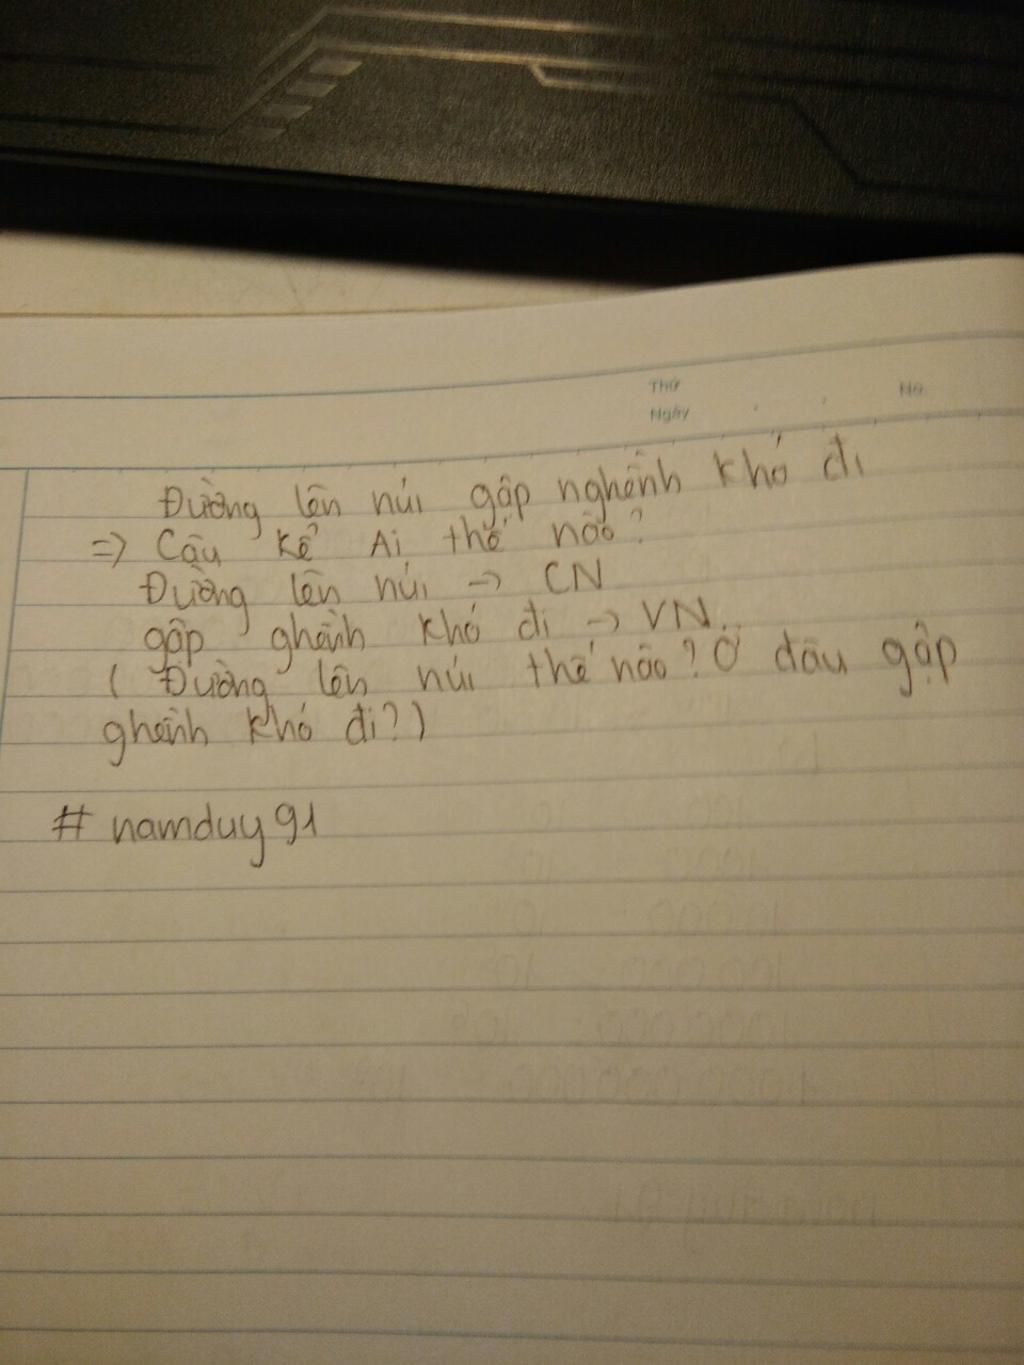 Thứ
No.
Ngày
Đường lên núi gập nghềnh khó đi
=> Câu kể Ai thế nào?
Đường lên núi -> CN
gập ghềnh khó đi -> VN.
( Đường lên núi thế nào? Ở đâu gập
ghềnh khó đi?)
# namduy91